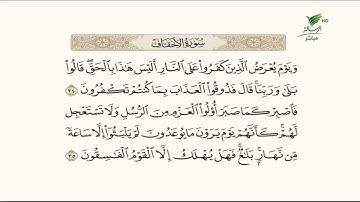 HD
مباشر
سورة الأحقاف
وَيَوْمَ يُعْرَضُ الَّذِينَ كَفَرُوا عَلَى النَّارِ أَلَيْسَ هَٰذَا بِالْحَقِّ قَالُوا
بَلَىٰ وَرَبِّنَا قَالَ فَذُوقُوا الْعَذَابَ بِمَا كُنتُمْ تَكْفُرُونَ ٣٤
فَاصْبِرْ كَمَا صَبَرَ أُولُو الْعَزْمِ مِنَ الرُّسُلِ وَلَا تَسْتَعْجِل
لَّهُمْ كَأَنَّهُمْ يَوْمَ يَرَوْنَ مَا يُوعَدُونَ لَمْ يَلْبَثُوا إِلَّا سَاعَةً
مِّن نَّهَارٍ بَلَاغٌ فَهَلْ يُهْلَكُ إِلَّا الْقَوْمُ الْفَاسِقُونَ ٣٥